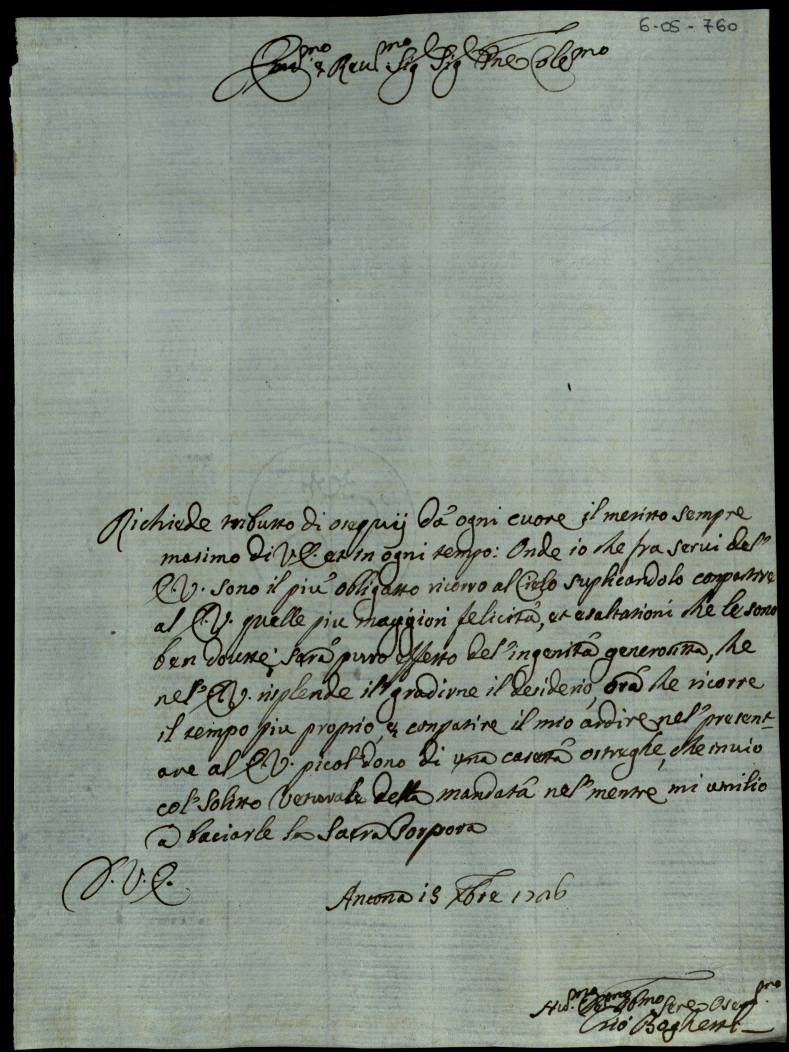 6-05-760
Em.mo e Reu.mo Sig. Sig. Prne Col.mo
Richiede tributto di osequij dà ogni cuore il meritto sempre
masimo di V.E. et in ogni tempo: Onde io che fra serui del'
E.V. sono il più obligatto ricorro al Cielo suplicandolo conpartire
al E.V. quelle piu maggiori felicità, et esaltationi che le sono
ben doutte; sarà purro effetto del'ingenità generosità, che
nel' E.V. risplende il' gradirne il desiderio, orà che ricorre
il tempo piu proprio, e conpatire il mio ardire nel' present-
are al E.V. picol' dono di una casettà ostreghe, che inuio
col' solitto Veturale della mandatà nel' mentre mi umilio
à baciarle la Sacra Porpora
D.V.E.
Ancona 15 Xbre 1706
Hu.mo Deu.mo Ser.e Oseq.mo
Baghetti